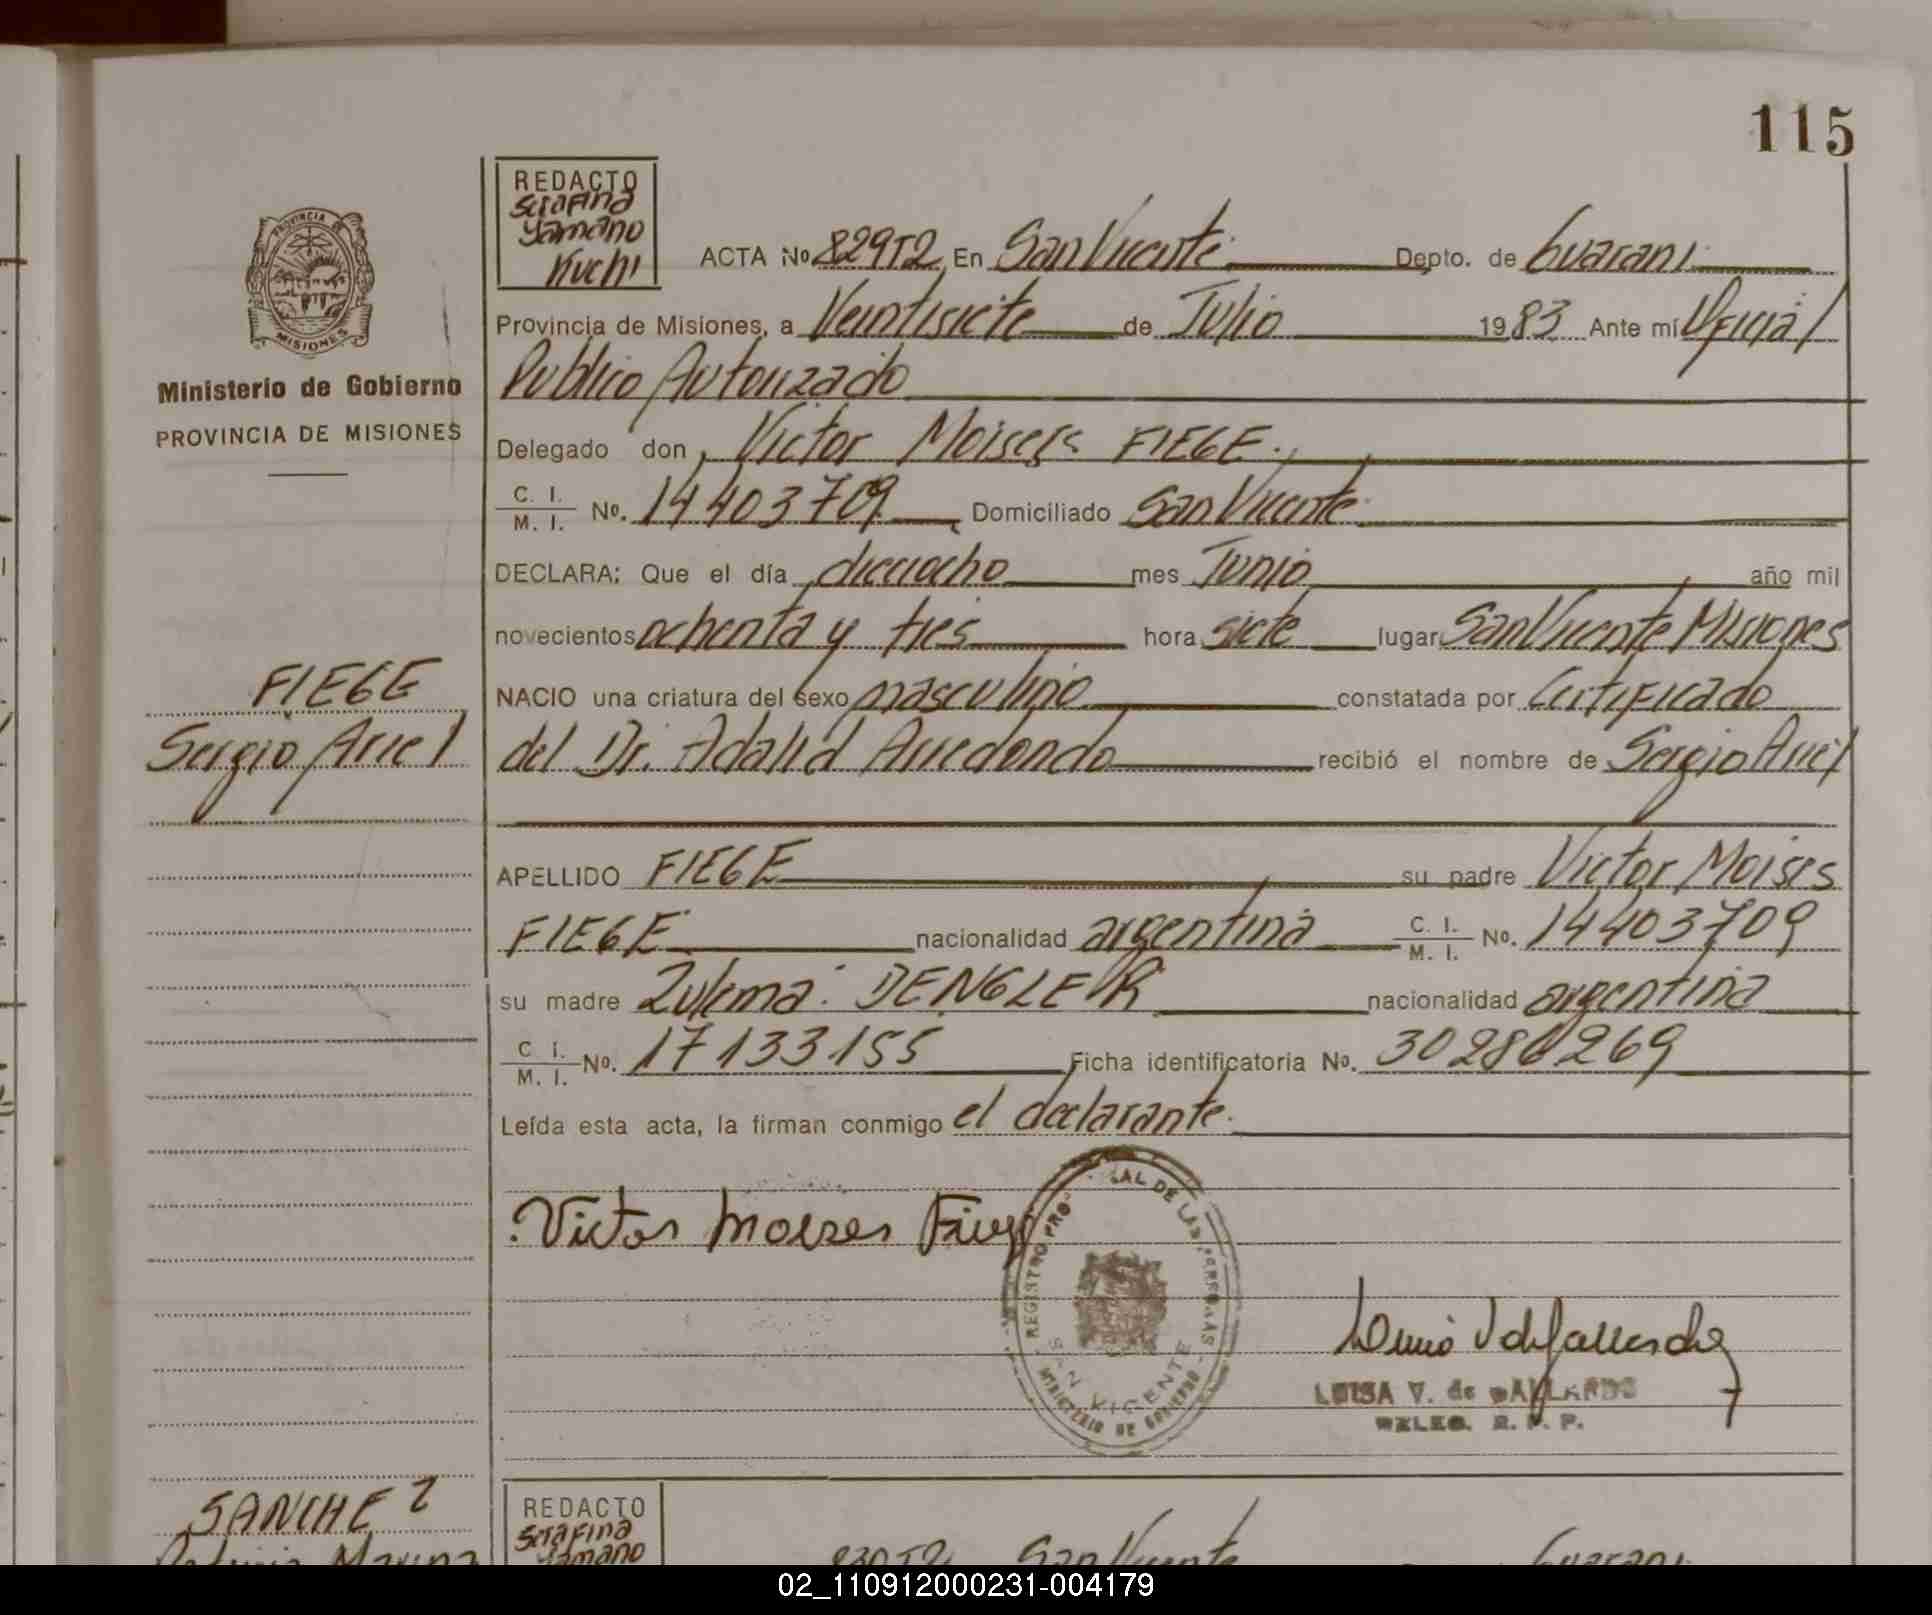 115
REDACTO
Serafina
Yamano
Kuchi
PROVINCIA
MISIONES
Ministerio de Gobierno
PROVINCIA DE MISIONES
ACTA No 829T2 En San Vicente Depto. de Guarani
Provincia de Misiones, a Veintisiete de Julio 1983 Ante mí Oficial
Publico Autorizado
Delegado don, Victor Moises FIEGE.
C. I. M. I. No. 14403709 Domiciliado San Vicente
DECLARA: Que el día dieciocho mes Junio año mil
novecientos ochenta y tres hora siete lugar San Vicente Misiones
NACIO una criatura del sexo masculino constatada por Certificado
FIEGE
Sergio Ariel
del Dr. Adalid Arredondo recibió el nombre de Sergio Ariel
APELLIDO FIEGE su padre Victor Moises
FIEGE nacionalidad argentina C. I. M. I. No. 14403709
su madre Zulema DENGLER nacionalidad argentina
C. I. M. I. No. 17133.155 Ficha identificatoria No. 30286269
Leída esta acta, la firman conmigo el declarante.
Victor Moises
REGISTRO PRO AL DE LAS PERSONAS
SAN VICENTE
MINISTERIO DE GOBIERNO
LUISA V. de GALLARDO
DELEG. R. P. P.
SANCHEZ
REDACTO
Serafina
Yamano
830T2 San Vicente Guarani
02_110912000231-004179